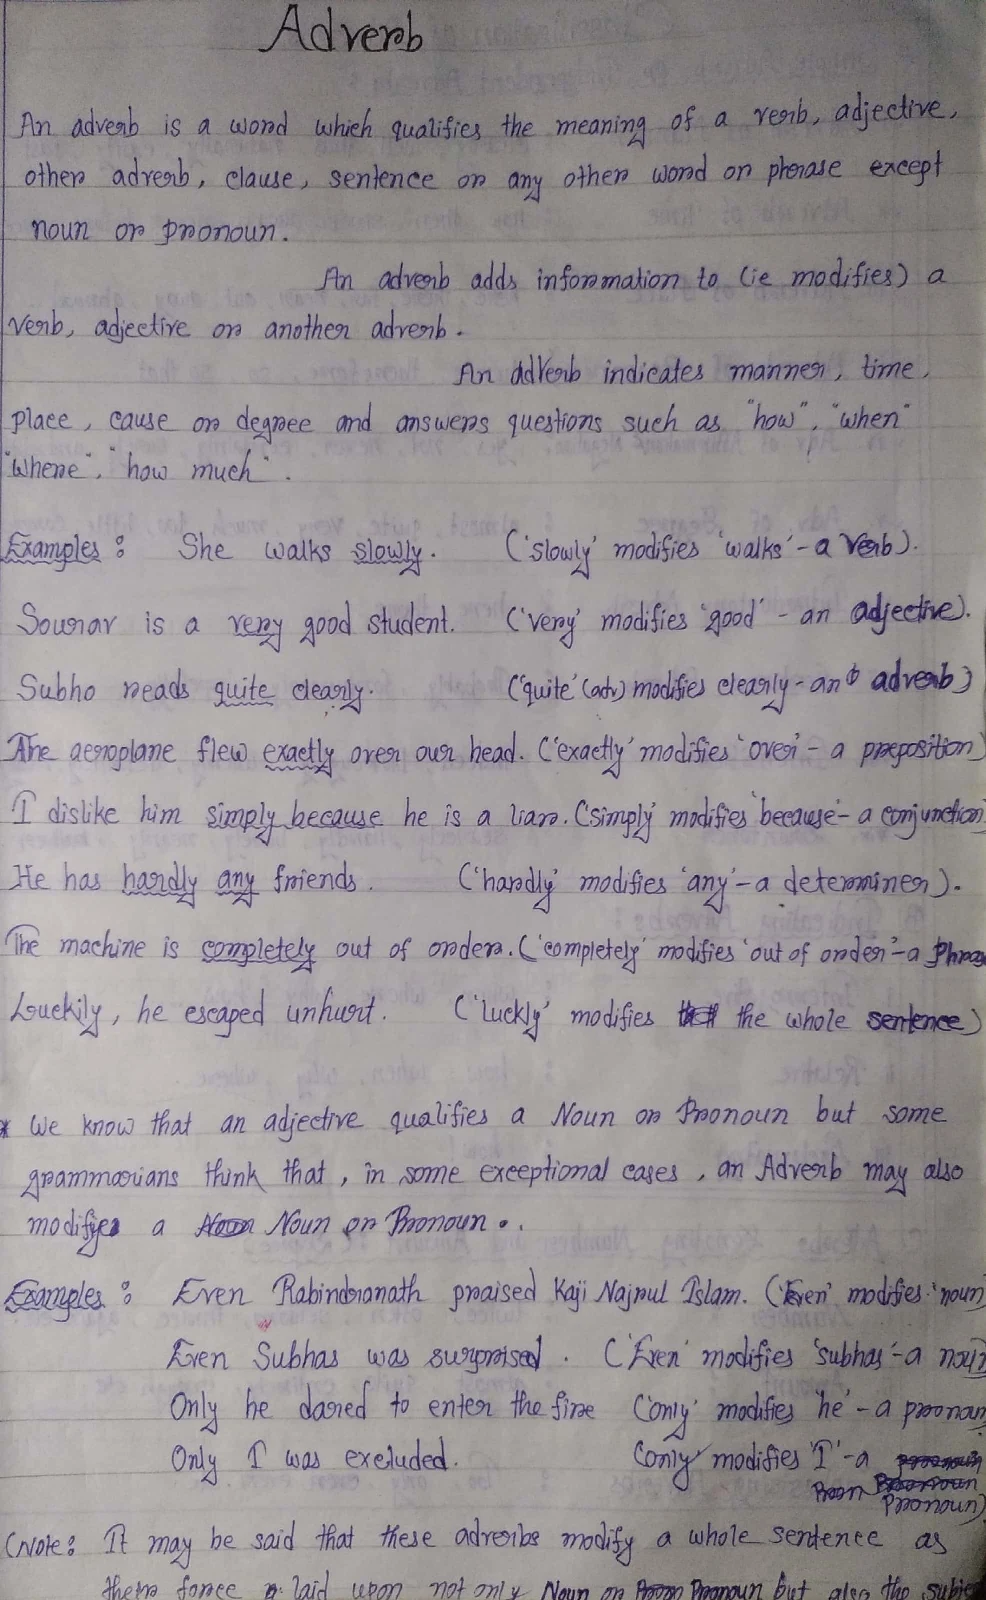 Adverb
An adverb is a word which qualifies the meaning of a verb, adjective,
other adverb, clause, sentence or any other word or phrase except
noun or pronoun.
An adverb adds information to (ie modifies) a
verb, adjective or another adverb.
An adverb indicates manner, time,
place, cause or degree and answers questions such as "how", "when"
"where", "how much".
Examples : She walks slowly. ('slowly' modifies 'walks' - a verb).
Sourav is a very good student. ('very' modifies 'good' - an adjective).
Subho reads quite clearly. ('quite' (adv) modifies clearly - an adverb)
The aeroplane flew exactly over our head. ('exactly' modifies 'over' - a preposition)
I dislike him simply because he is a liar. ('simply' modifies 'because' - a conjunction)
He has hardly any friends. ('hardly' modifies 'any' - a determiner).
The machine is completely out of order. ('completely' modifies 'out of order' - a Phras
Luckily, he escaped unhurt. ('luckly' modifies the whole sentence)
* We know that an adjective qualifies a Noun or Pronoun but some
grammarians think that, in some exceptional cases, an Adverb may also
modify a Noun or Pronoun.
Examples : Even Rabindranath praised Kaji Najrul Islam. ('Even' modifies 'noun)
Even Subhas was surprised. ('Even' modifies 'subhas' - a noun)
Only he dared to enter the fire ('only' modifies 'he' - a pronoun
Only I was excluded. ('only' modifies 'I' - a
Pronoun)
(Note: It may be said that these adverbs modify a whole sentence as
their force laid upon not only Noun or Pronoun but also the subje